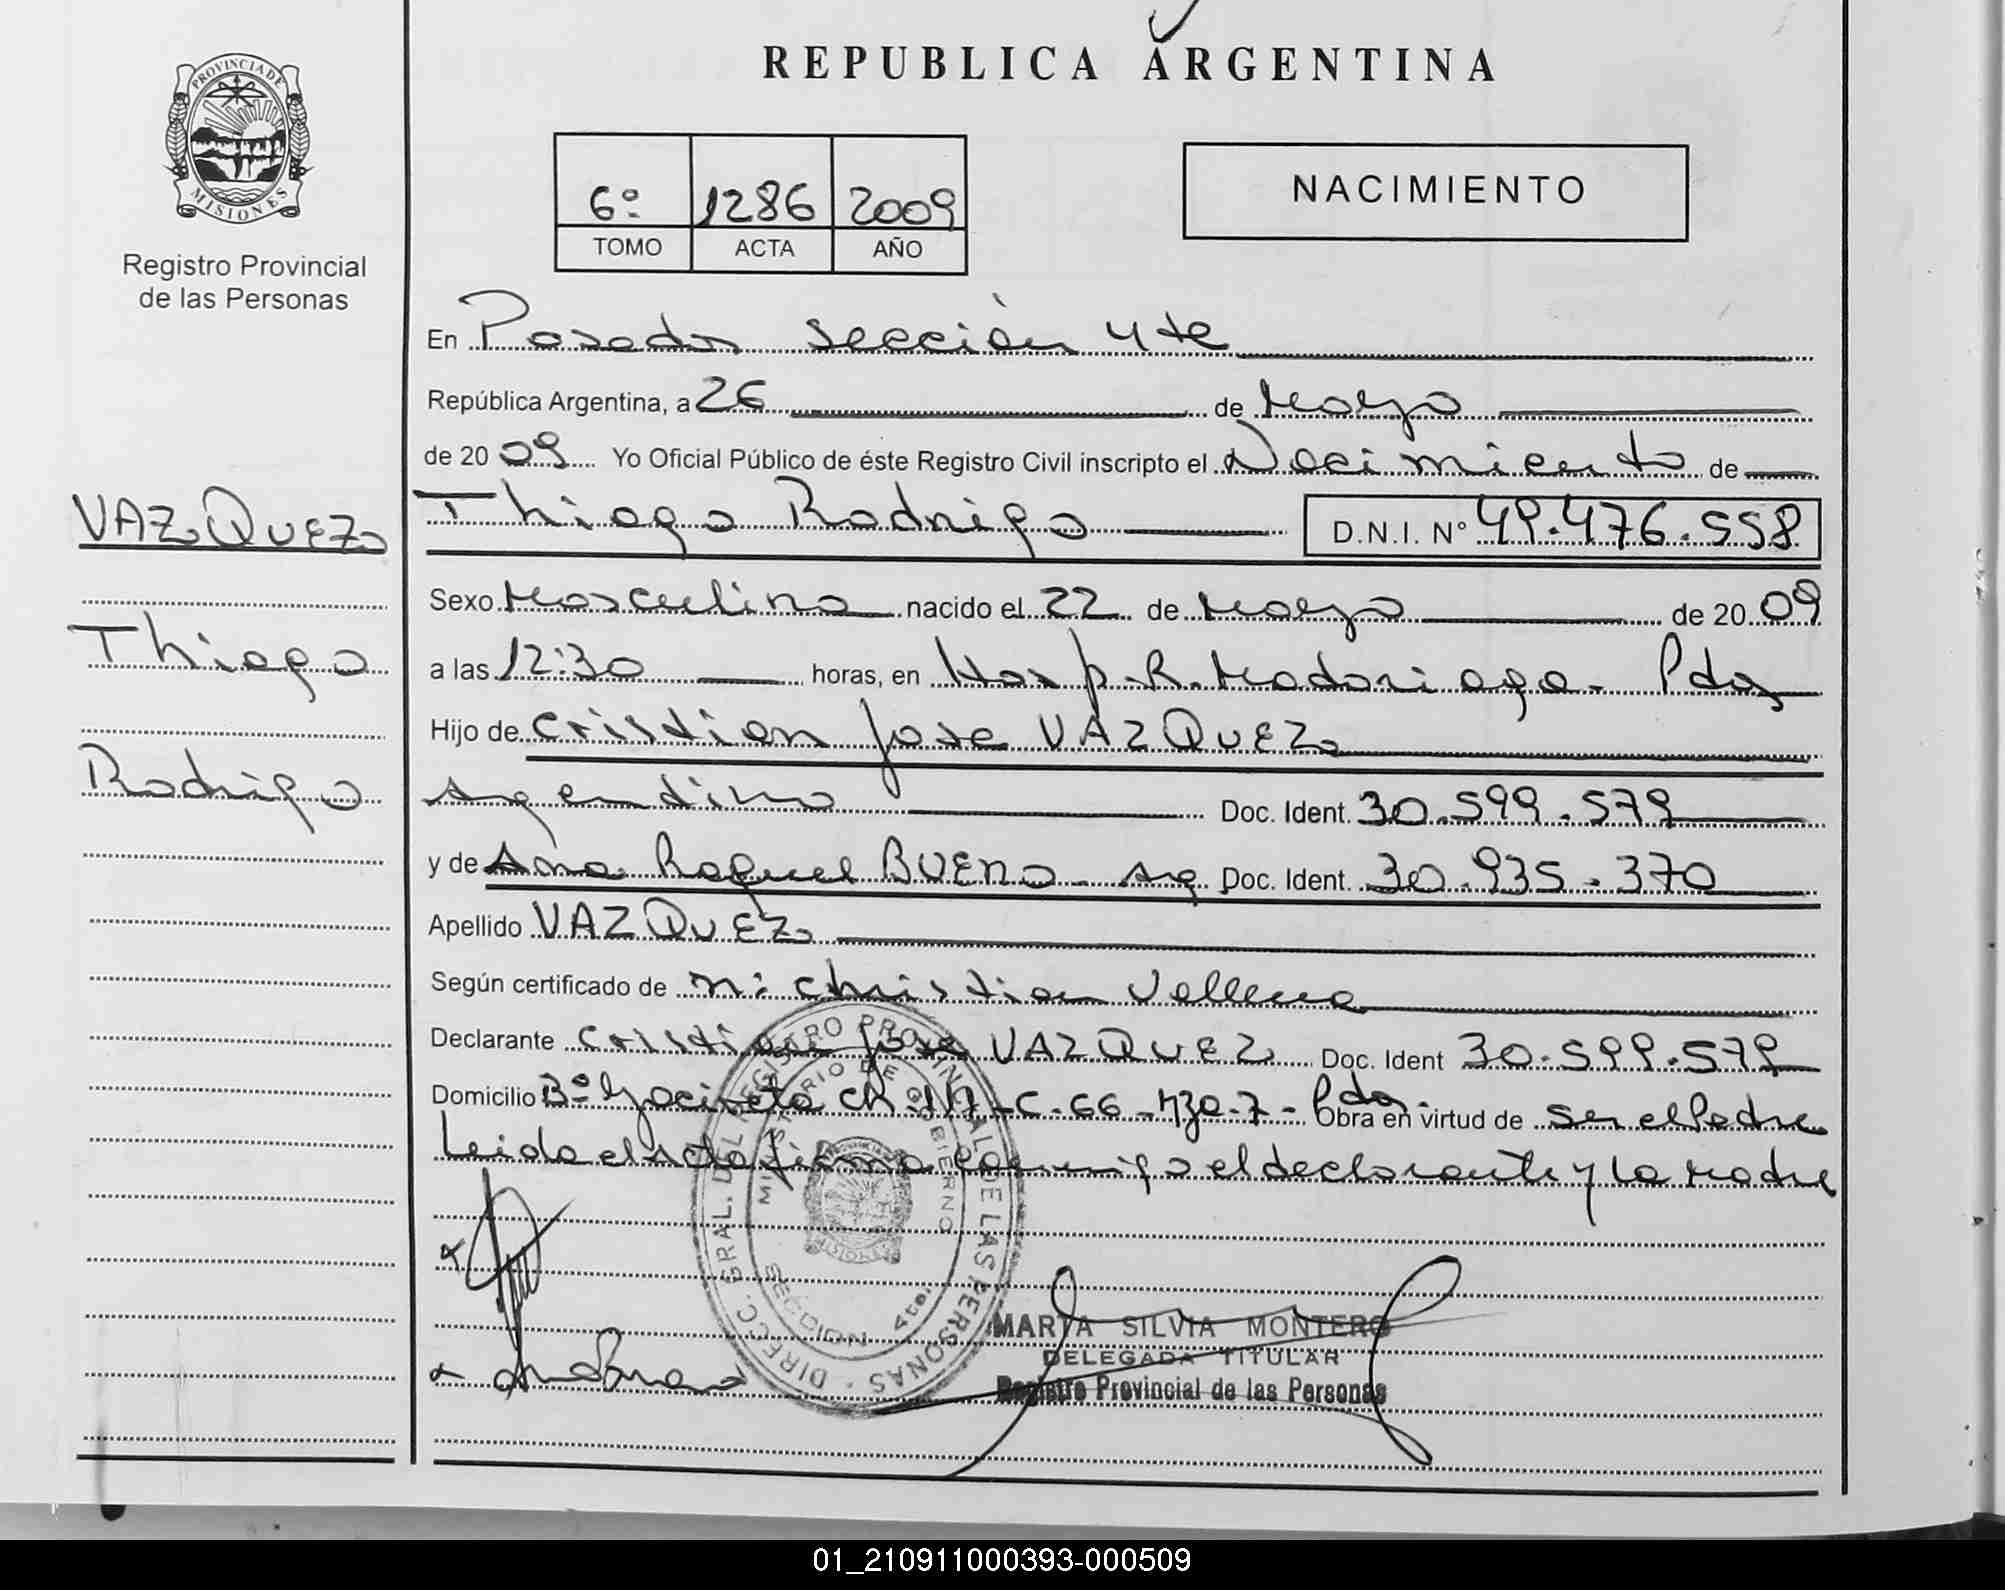 REPUBLICA ARGENTINA
PROVINCIA DE MISIONES
Registro Provincial
de las Personas
6º 1286 2009
TOMO ACTA AÑO
NACIMIENTO
En Posadas Sección 4te
República Argentina, a 26 de Mayo
de 20 09 Yo Oficial Público de éste Registro Civil inscripto el Nacimiento de
Thiago Rodrigo D.N.I. Nº 49.476.558
VAZQUEZ
Thiago
Rodrigo
Sexo Masculino nacido el 22 de Mayo de 20 09
a las 12:30 horas, en Hosp. R. Madariaga - Pdas
Hijo de Cristian Jose VAZQUEZ
Argentino Doc. Ident. 30.599.579
y de Ana Raquel BUENO - Arg. Doc. Ident. 30.935.370
Apellido VAZQUEZ
Según certificado de Christian
Declarante Cristian Jose VAZQUEZ Doc. Ident 30.599.579
Domicilio Bº Yacireta C. 66 - 7 - Pdas. Obra en virtud de ser el Padre
Leida el Acta firma conmigo el declarante y la madre
DIRECC. GRAL. DEL REGISTRO PROVINCIAL DE LAS PERSONAS
MINISTERIO DE GOBIERNO
SECCION 4ta.
MARTA SILVIA MONTERO
DELEGADA TITULAR
Registro Provincial de las Personas
01_210911000393-000509